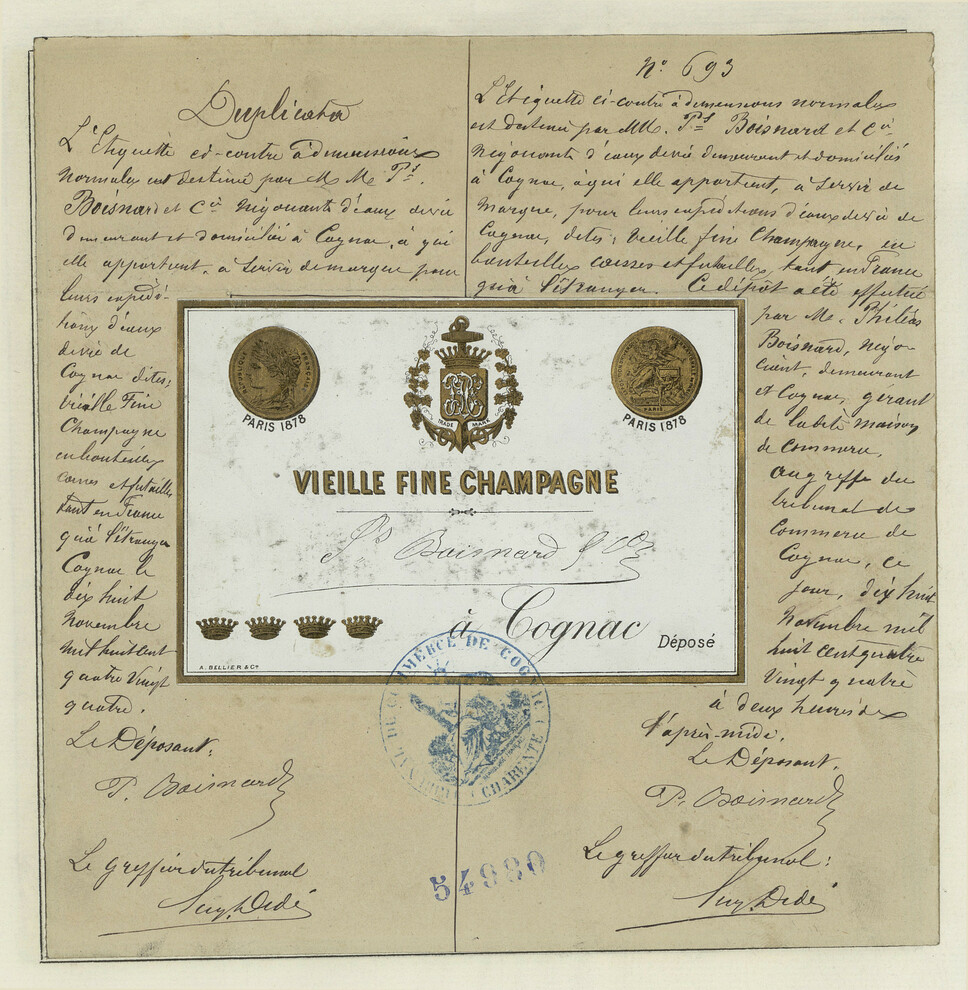 Duplicata
L'Etiquette ci-contre à dimensions
normales est destiné par M M. Ps.
Boisnard et Cie Négociants d'eaux de vie
demeurant et domiciliés à Cognac, à qui
elle appartient, à servir de marque pour
leurs expédi-
tions d'eaux
de vie de
Cognac dites;
vieille Fine
Champagne
en bouteilles
caisses et futailles
tant en France
qu'à l'étranger
Cognac le
dix huit
Novembre
mil huit cent
quatre vingt
quatre.
Le Déposant:
P. Boisnard
Le greffier du tribunal
N° 693
L'Etiquette ci-contre à dimensions normales
est destiné par MM. Ps Boisnard et Cie
Négociants d'eaux de vie demeurant et domiciliés
à Cognac, à qui elle appartient, à servir de
marque, pour leurs expéditions d'eaux de vie de
Cognac, dites; vieille fine Champagne, en
bouteilles caisses et futailles, tant en France
qu'à l'étranger. Ce dépôt a été effectué
par M. Philéas
Boisnard, négo-
ciant, demeurant
à Cognac, gérant
de la dite maison
de commerce,
au greffe du
tribunal de
Commerce de
Cognac, ce
jour, dix huit
Novembre mil
huit cent quatre
vingt quatre
à deux heures de
l'après-midi.
Le Déposant.
P. Boisnard
Le greffier du tribunal:
REPUBLIQUE FRANÇAISE
PARIS 1878
TRADE MARK
PARIS
PARIS 1878
VIEILLE FINE CHAMPAGNE
Ps Boisnard & Co
à Cognac
Déposé
A. BELLIER & Cie
TRIBUNAL DU COMMERCE DE COGNAC
CHARENTE
54980